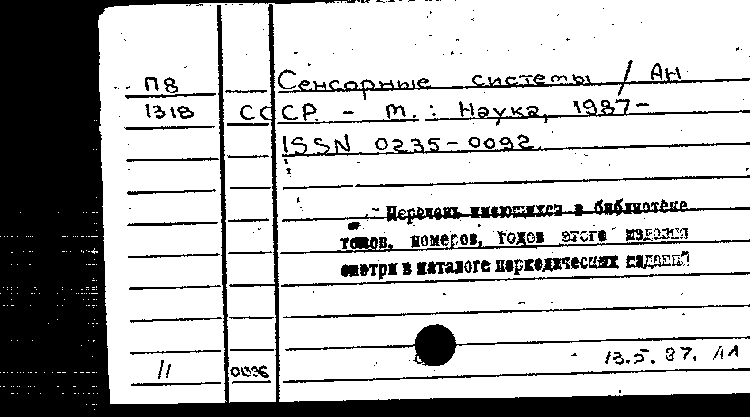 П8 Сенсорные системы / АН
1318 СССР. - М.: Наука, 1987-
ISSN 0235-0092
Перечень имеющихся в библиотеке
томов, номеров, годов этого издания
смотри в каталоге периодических изданий
11 13.5.87.